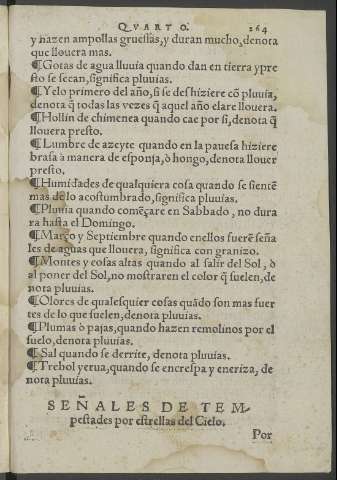 QVARTO. 264
y hazen ampollas gruessas, y duran mucho, denota
que llouera mas.
¶ Gotas de agua lluuia quando dan en tierra y pre
sto se secan, significa pluuias.
¶ Yelo primero del año, si se des hiziere cõ pluuia,
denota q̃ todas las vezes q̃ aquel año elare llouera.
¶ Hollin de chimenea quando cae por si, denota q̃
llouera presto.
¶ Lumbre de azeyte quando en la pauesa hiziere
brasa à manera de esponja, ò hongo, denota llouer
presto.
¶ Humidades de qualquiera cosa quando se sientẽ
mas de lo acostumbrado, significa pluuias.
¶ Pluuia quando començare en Sabbado, no dura
ra hasta el Domingo.
¶ Março y Septiembre quando enellos fuerẽ seña
les de aguas que llouera, significa con granizo.
¶ Montes y cosas altas quando al salir del Sol, ò
al poner del Sol, no mostraren el color q̃ suelen, de
nota pluuias.
¶ Olores de qualesquier cosas quãdo son mas fuer
tes de lo que suelen, denota pluuias.
¶ Plumas ò pajas, quando hazen remolinos por el
suelo, denota pluuias.
¶ Sal quando se derrite, denota pluuias.
¶ Trebol yerua, quando se encrespa y eneriza, de
nota pluuias.
SEÑALES DE TEM
pestades por estrellas del Cielo.
Por